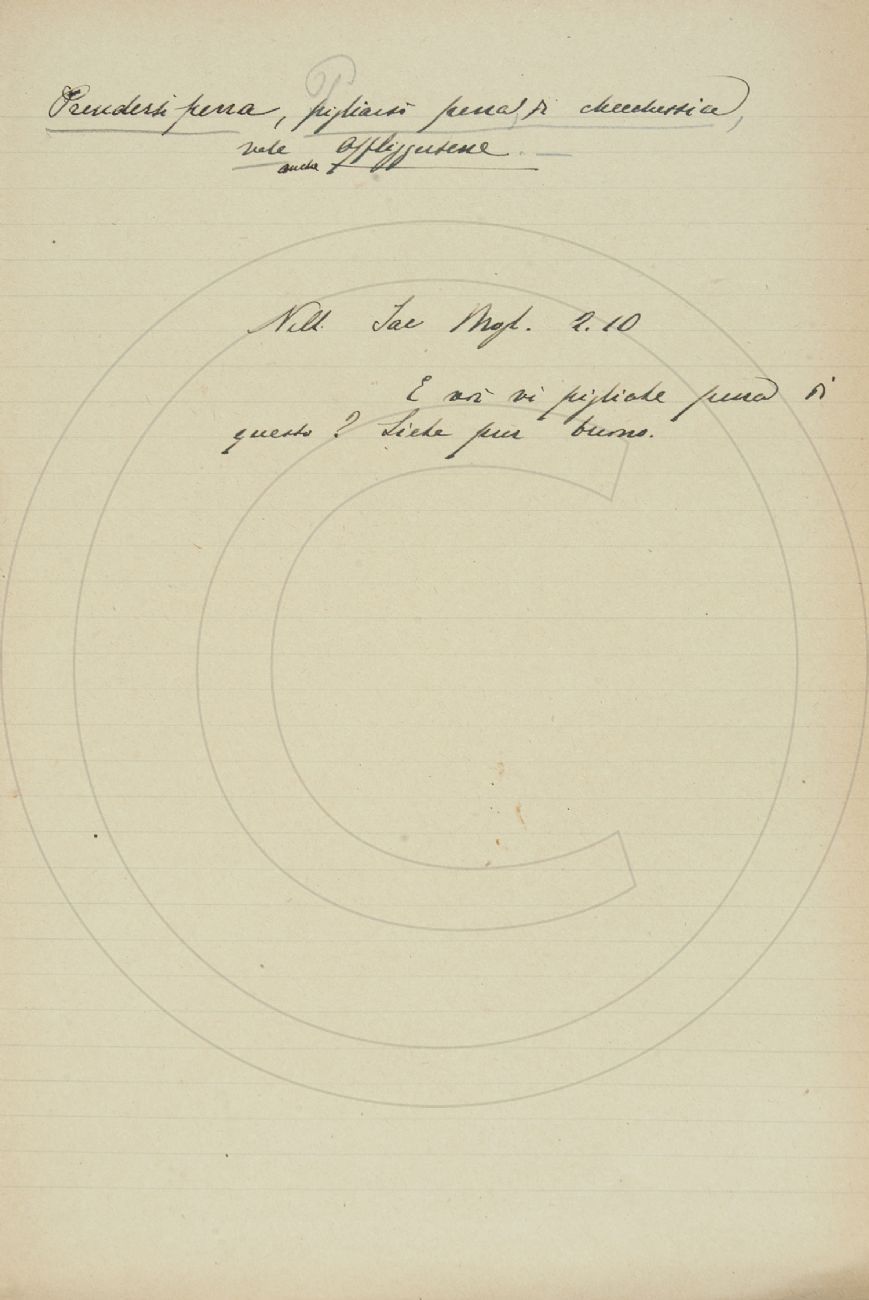 Prendersi pena, pigliarsi pena di checchessia,
vale anche affliggersene.
Nell. Iac. Mogl. 2.10
E voi vi pigliate pena di
questo? Siete pur buono.